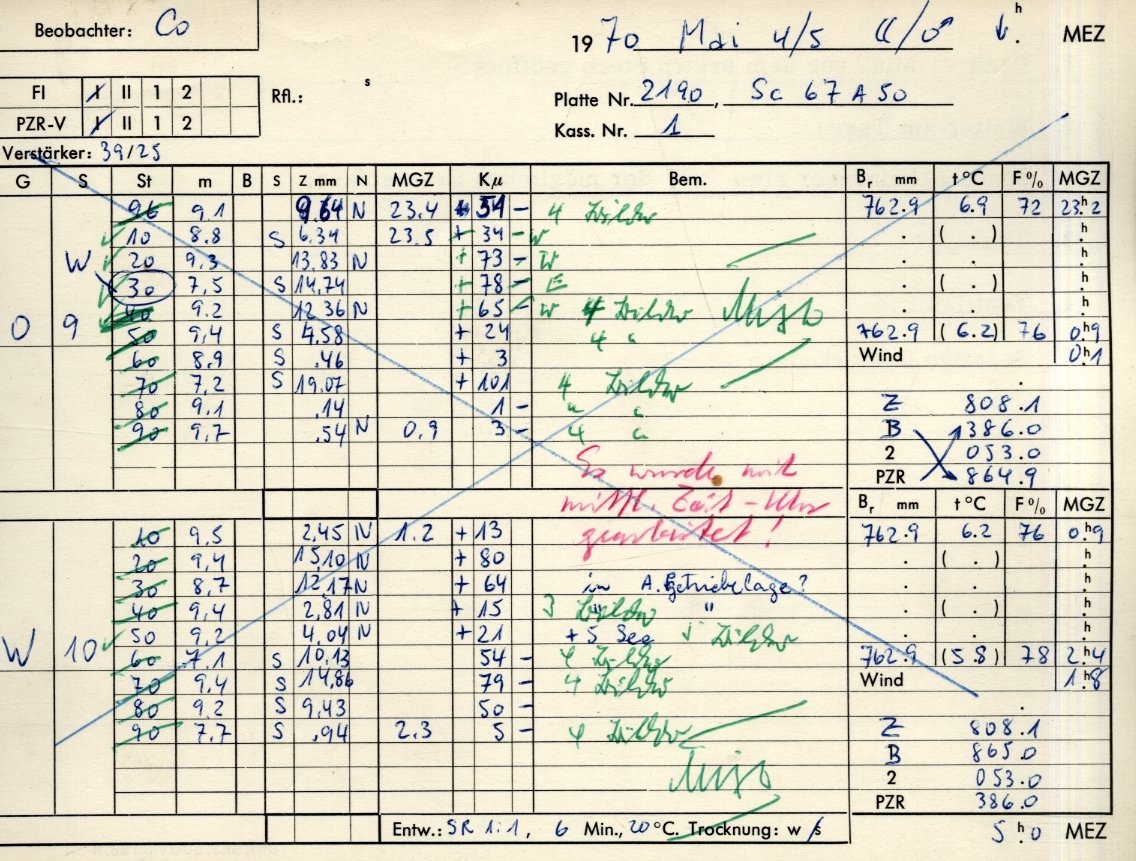 Beobachter: Co
19 70 Mai 4/5 ☾/♂ h . MEZ
FI I II 1 2 Rfl.: s
Platte Nr. 2190, Sc 67 A 50
PZR-V I II 1 2
Kass. Nr. 1
Verstärker: 39/25
G S St m B S Z mm N MGZ Kμ Bem. Br mm t°C F% MGZ
9.1 9.64 N 23.4 54 - 4 Bilder 762.9 6.9 72 23h.2
10 8.8 S 6.34 23.5 + 34 - W . ( . ) h
W 20 9.3 13.83 N + 73 - W . . h
30 7.5 S 14.74 + 78 - E . ( . ) h
40 9.2 12.36 N + 65 - W 4 Bilder Miso . . h
O 9 50 9.4 S 4.58 + 24 4 " 762.9 (6.2) 76 0h.9
60 8.9 S .46 + 3 Wind 0h.1
70 7.2 S 19.07 + 101 4 Bilder .
80 9.1 .14 1 - " " Z 808.1
90 9.7 .54 N 0.9 3 - 4 " B 386.0
2 053.0
Es wurde mit
PZR 864.9
mittl. Zeit-Uhr
Br mm t°C F% MGZ
gearbeitet!
10 9.5 2.45 N 1.2 + 13 762.9 6.2 76 0h.9
20 9.4 15.10 N + 80 . ( . ) h
30 8.7 12.17 N + 64 in A. Getriebelage? . . h
40 9.4 2.81 N + 15 3 Bilder " . ( . ) h
W 10 50 9.2 4.04 N + 21 + 5 Seg 5 Bilder . . h
60 7.1 S 10.13 54 - 4 Bilder 762.9 (5.8) 78 2h.4
70 9.4 S 14.86 79 - 4 Bilder Wind 1h.8
80 9.2 S 9.43 50 - .
90 7.7 S .94 2.3 5 - 4 Bilder Z 808.1
B 865.0
Miso
2 053.0
PZR 386.0
Entw.: SR 1:1, 6 Min., 20 °C. Trocknung: w/s 5 h.0 MEZ